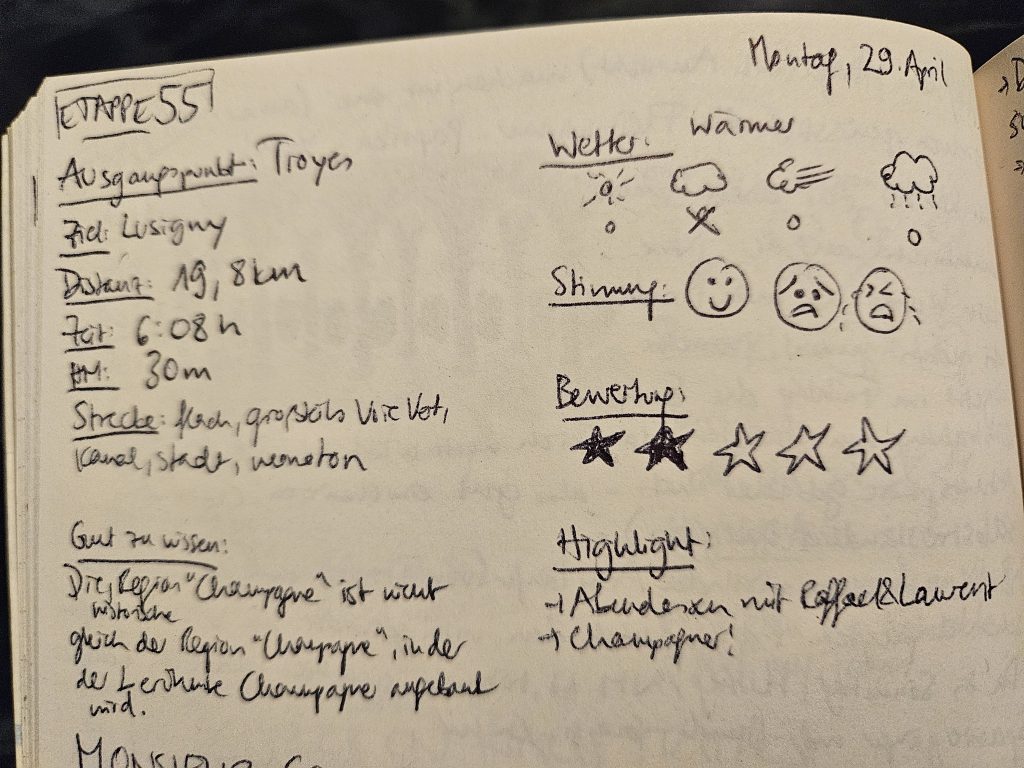 Montag, 29. April
ETAPPE 55
Ausgangspunkt: Troyes
Ziel: Lusigny
Distanz: 19,8km
Zeit: 6:08h
HM: 30m
Strecke: flach, großteils Voie Vert,
Kanal, Stadt, monoton
Gut zu wissen:
Die historische Region "Champagne" ist nicht
gleich der Region "Champagne", in der
der berühmte Champagner angebaut
wird.
MONSIEUR
Wetter: wärmer
Stimmung:
Bewertung:
Highlight:
→ Abendessen mit Raffael & Laurent
→ Champagner!